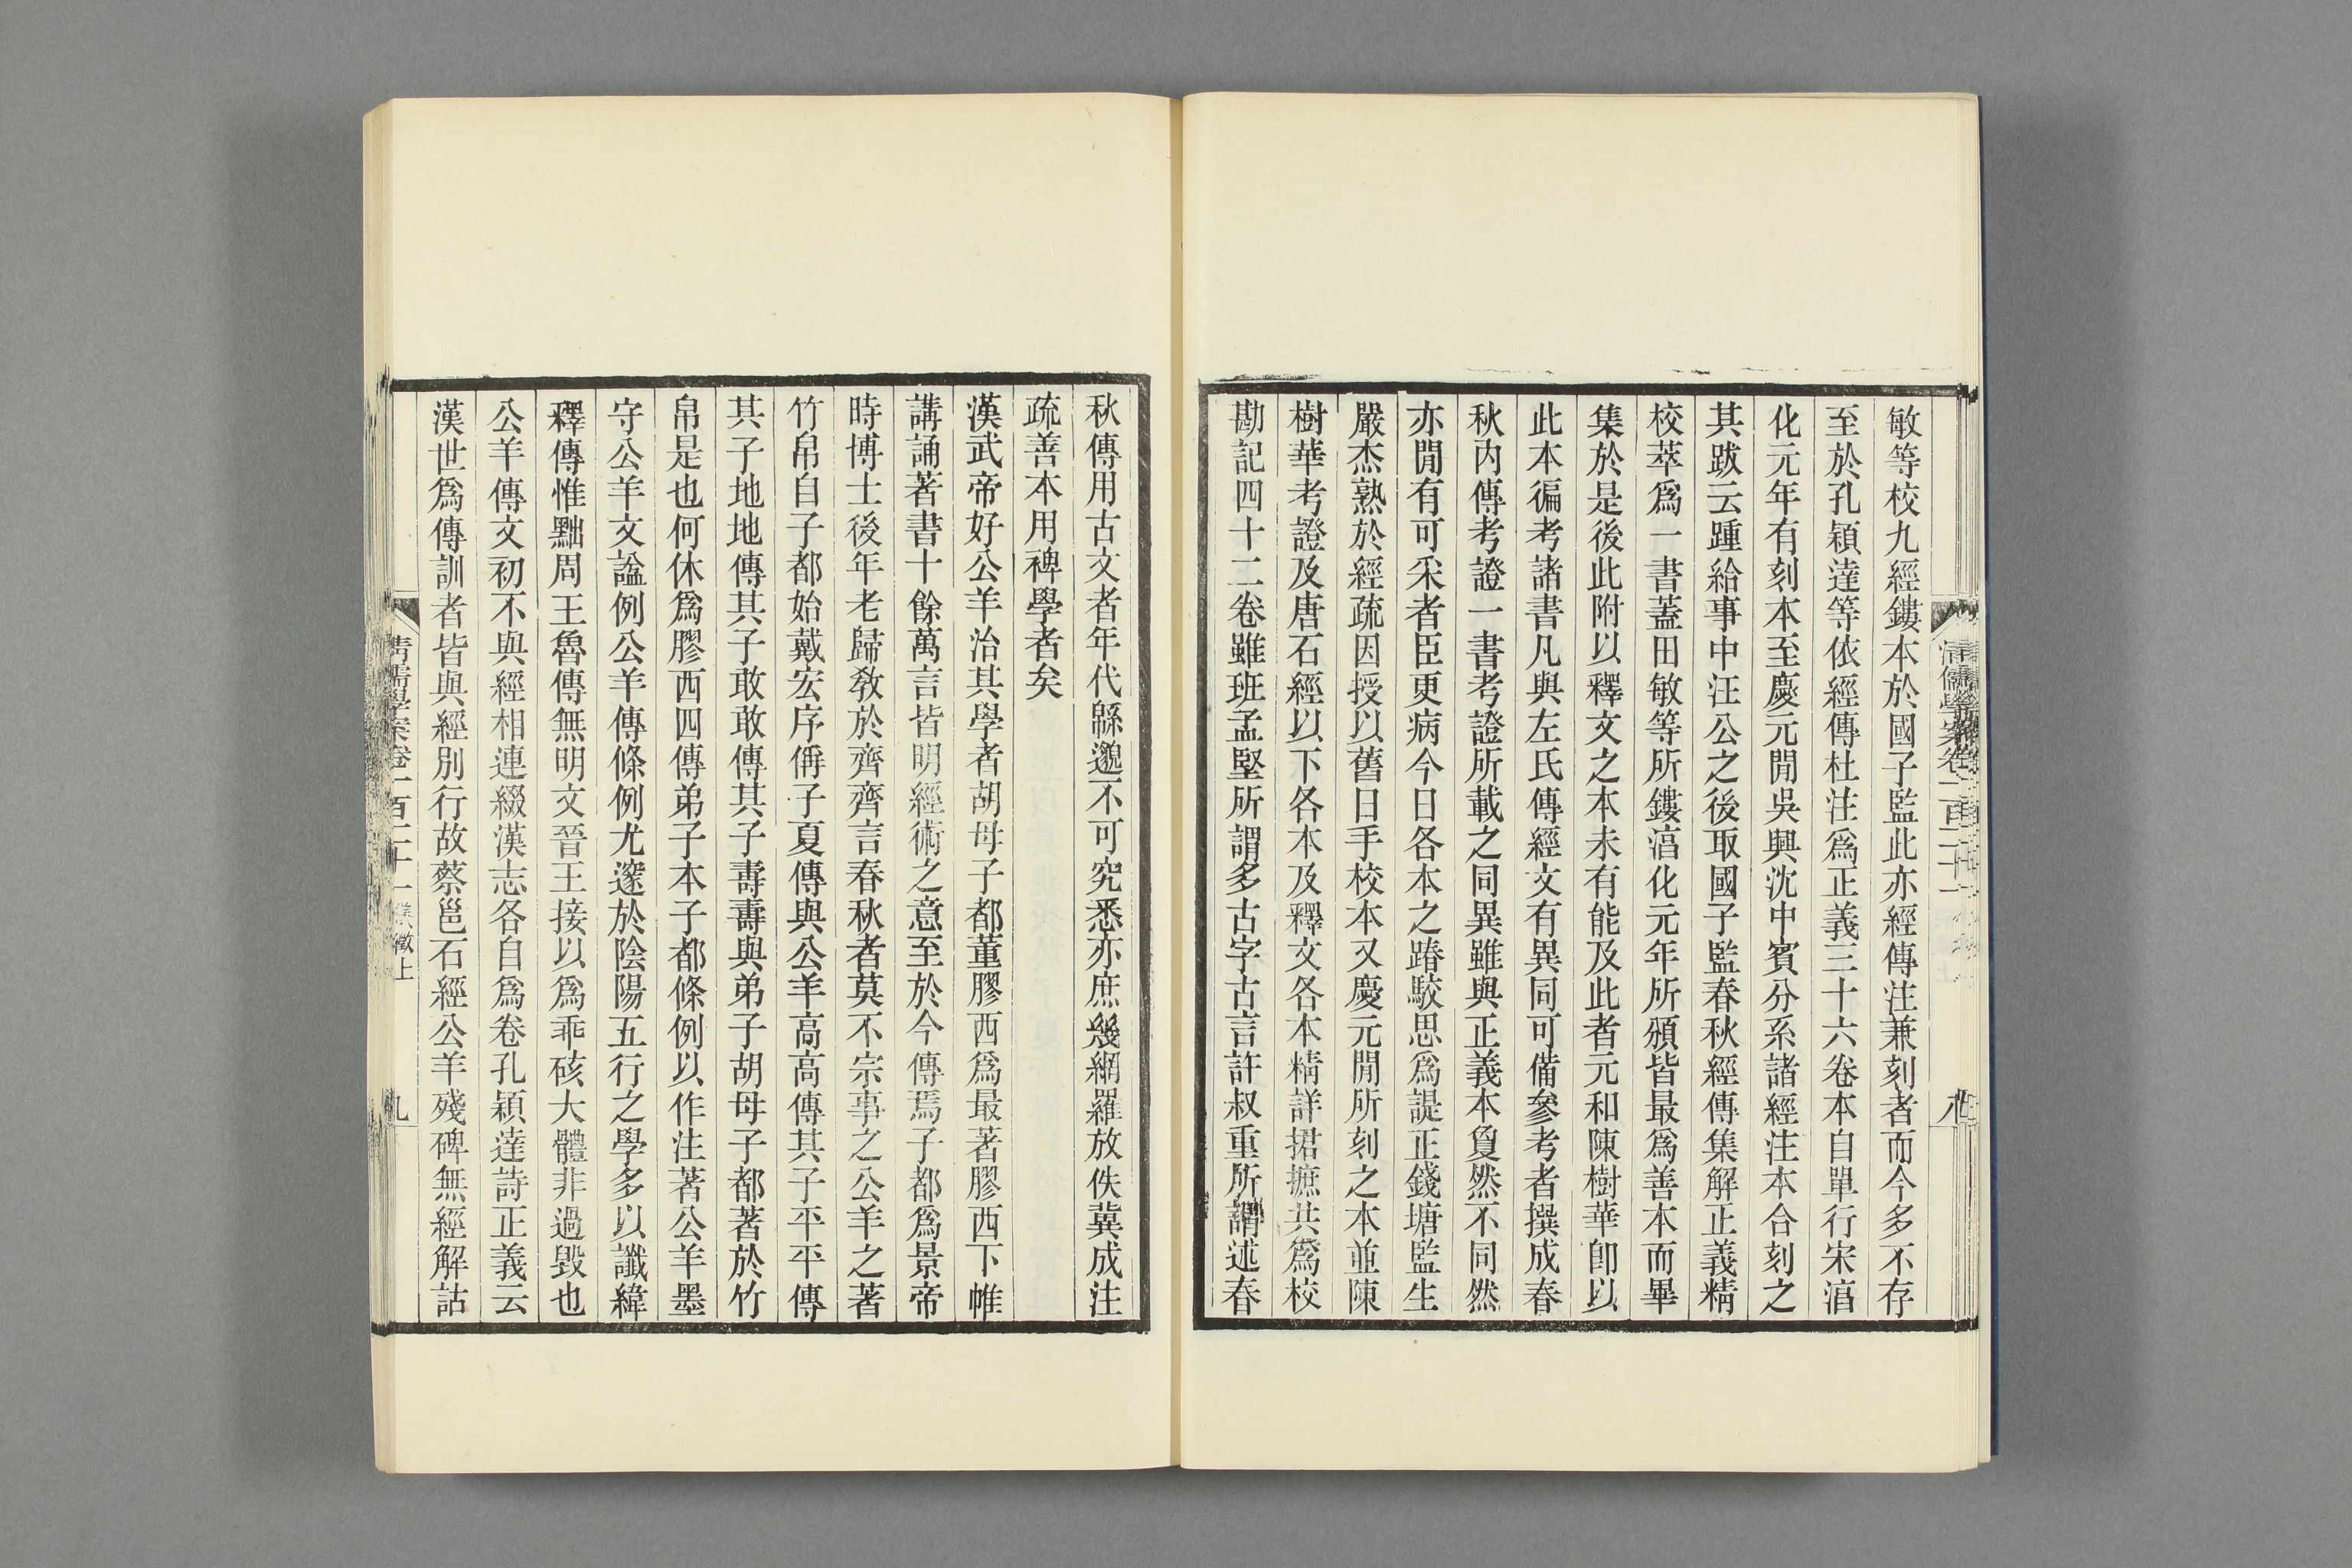 敏等校九經鏤本於國子監此亦經傳注兼刻者而今多不存
至於孔穎達等依經傳杜注爲正義三十六卷本自單行宋湻
化元年有刻本至慶元閒吳興沈中賓分系諸經注本合刻之
其跋云踵給事中汪公之後取國子監春秋經傳集解正義精
校萃爲一書蓋田敏等所鏤湻化元年所頒皆最爲善本而畢
集於是後此附以釋文之本未有能及此者元和陳樹華卽以
此本徧考諸書凡與左氏傳經文有異同可備參考者撰成春
秋內傳考證一書考證所載之同異雖與正義本夐然不同然
亦閒有可采者臣更病今日各本之踳駁思爲諟正錢塘監生
嚴杰熟於經疏因授以舊日手校本又慶元閒所刻之本並陳
樹華考證及唐石經以下各本及釋文各本精詳捃摭共爲校
勘記四十二卷雖班孟堅所謂多古字古言許叔重所謂述春
秋傳用古文者年代緜邈不可究悉亦庶幾網羅放佚冀成注
疏善本用裨學者矣
漢武帝好公羊治其學者胡母子都董膠西爲最著膠西下帷
講誦著書十餘萬言皆明經術之意至於今傳焉子都爲景帝
時博士後年老歸敎於齊齊言春秋者莫不宗事之公羊之著
竹帛自子都始戴宏序偁子夏傳與公羊高高傳其子平平傳
其子地地傳其子敢敢傳其子壽壽與弟子胡母子都著於竹
帛是也何休爲膠西四傳弟子本子都條例以作注著公羊墨
守公羊文謚例公羊傳條例尤邃於陰陽五行之學多以讖緯
釋傳惟黜周王魯傳無明文晉王接以爲乖硋大體非過毀也
公羊傳文初不與經相連綴漢志各自爲卷孔穎達詩正義云
漢世爲傳訓者皆與經別行故蔡邕石經公羊殘碑無經解詁
清儒學案卷一百二十一 儀徵上
九